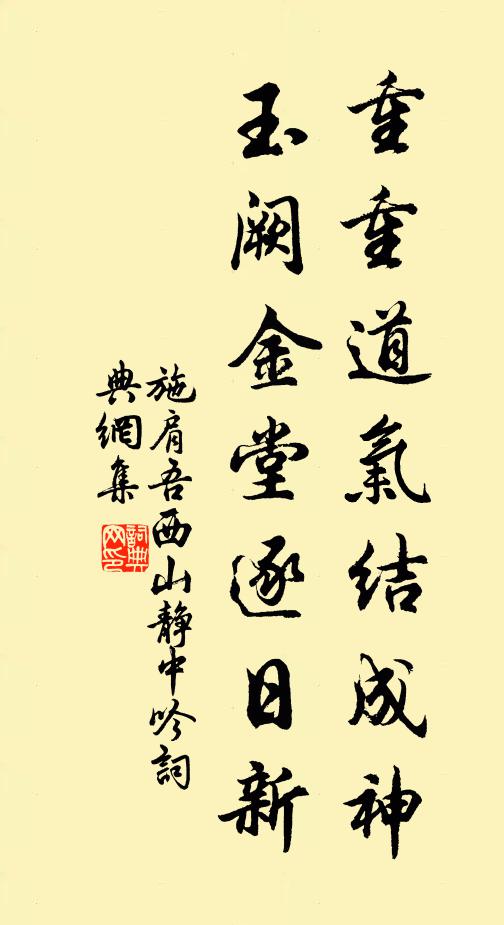 重重道氣結成神
玉阙金堂逐日新
施肩吾西山靜中吟詞
典網集
詞典
网印